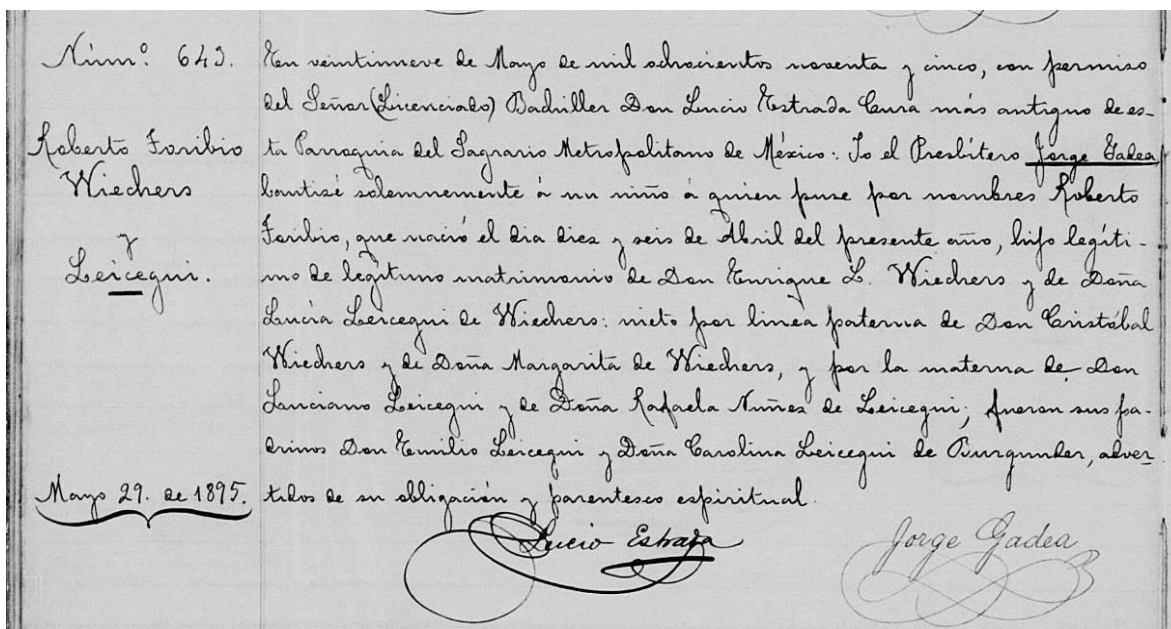 Núm.º 643.
Roberto Toribio
Wiechers
y
Leicegui.
Mayo 29. de 1895.
En veintinueve de Mayo de mil ochocientos noventa y cinco, con permiso
del Señor (Licenciado) Bachiller Don Lucio Estrada Cura más antiguo de es-
ta Parroquia del Sagrario Metropolitano de México: Yo el Presbítero Jorge Gadea
bautisé solemnemente á un niño á quien puse por nombres Roberto
Toribio, que nació el dia diez y seis de Abril del presente año, hijo legíti-
mo de legítimo matrimonio de Don Enrique L. Wiechers y de Doña
Lucía Leicegui de Wiechers: nieto por linea paterna de Don Cristóbal
Wiechers y de Doña Margarita de Wiechers, y por la materna de Don
Luciano Leicegui y de Doña Rafaela Nuñez de Leicegui; fueron sus pa-
drinos Don Emilio Leicegui y Doña Carolina Leicegui de Burgunder, adver-
tidos de su obligación y parentesco espiritual.
Lucio Estrada
Jorge Gadea